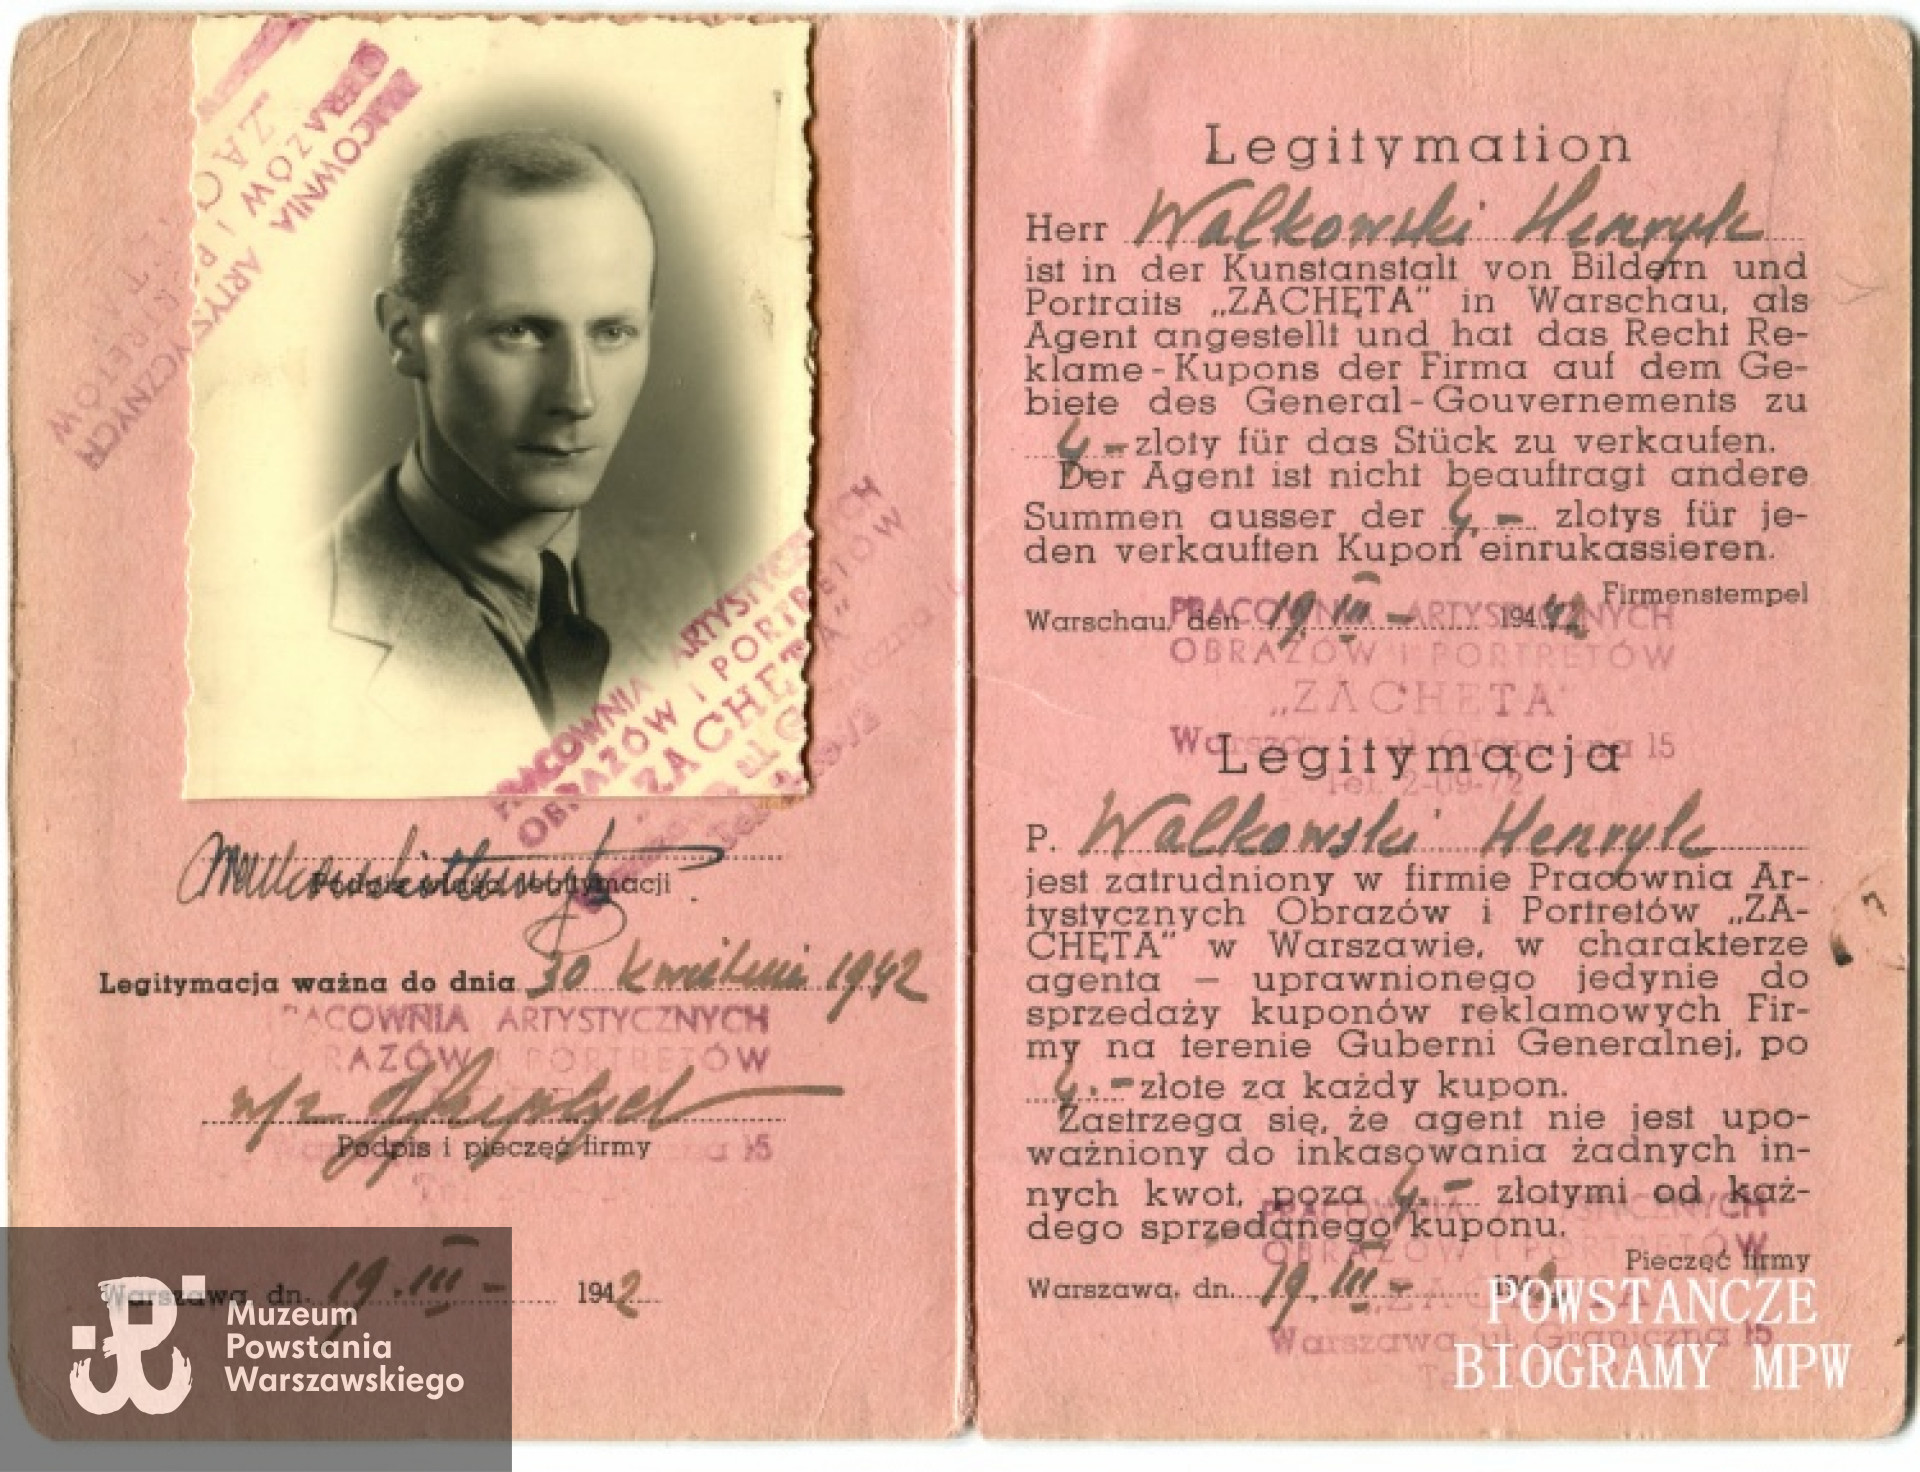 PRACOWNIA ARTYSTYCZNYCH
OBRAZÓW I PORTRETÓW
PRACOWNIA ARTYSTYCZNYCH
OBRAZÓW I PORTRETÓW
"ZACHĘTA"
Podpis legitymacji
Legitymacja ważna do dnia 30 kwietnia 1942
PRACOWNIA ARTYSTYCZNYCH
OBRAZÓW I PORTRETÓW
Podpis i pieczęć firmy
Warszawa, dn. 19.III - 1942
Muzeum
Powstania
Warszawskiego
Legitymation
Herr Walkowski Henryk
ist in der Kunstanstalt von Bildern und
Portraits „ZACHĘTA" in Warschau, als
Agent angestellt und hat das Recht Re-
klame-Kupons der Firma auf dem Ge-
biete des General-Gouvernements zu
4.- zloty für das Stück zu verkaufen.
Der Agent ist nicht beauftragt andere
Summen ausser der 4.- zlotys für je-
den verkauften Kupon einrukassieren.
Firmenstempel
Warschau, den 19.III - 1942
PRACOWNIA ARTYSTYCZNYCH
OBRAZÓW I PORTRETÓW
„ZACHĘTA"
Warszawa ul. Graniczna 15
Tel. 2-09-72
Legitymacja
P. Walkowski Henryk
jest zatrudniony w firmie Pracownia Ar-
tystycznych Obrazów i Portretów „ZA-
CHĘTA" w Warszawie, w charakterze
agenta — uprawnionego jedynie do
sprzedaży kuponów reklamowych Fir-
my na terenie Guberni Generalnej, po
4.- złote za każdy kupon.
Zastrzega się, że agent nie jest upo-
ważniony do inkasowania żadnych in-
nych kwot, poza 4.- złotymi od każ-
dego sprzedanego kuponu.
Pieczęć firmy
Warszawa, dn. 19.III -
PRACOWNIA ARTYSTYCZNYCH
OBRAZÓW I PORTRETÓW
„ZACHĘTA"
Warszawa ul. Graniczna 15
POWSTAŃCZE
BIOGRAMY MPW